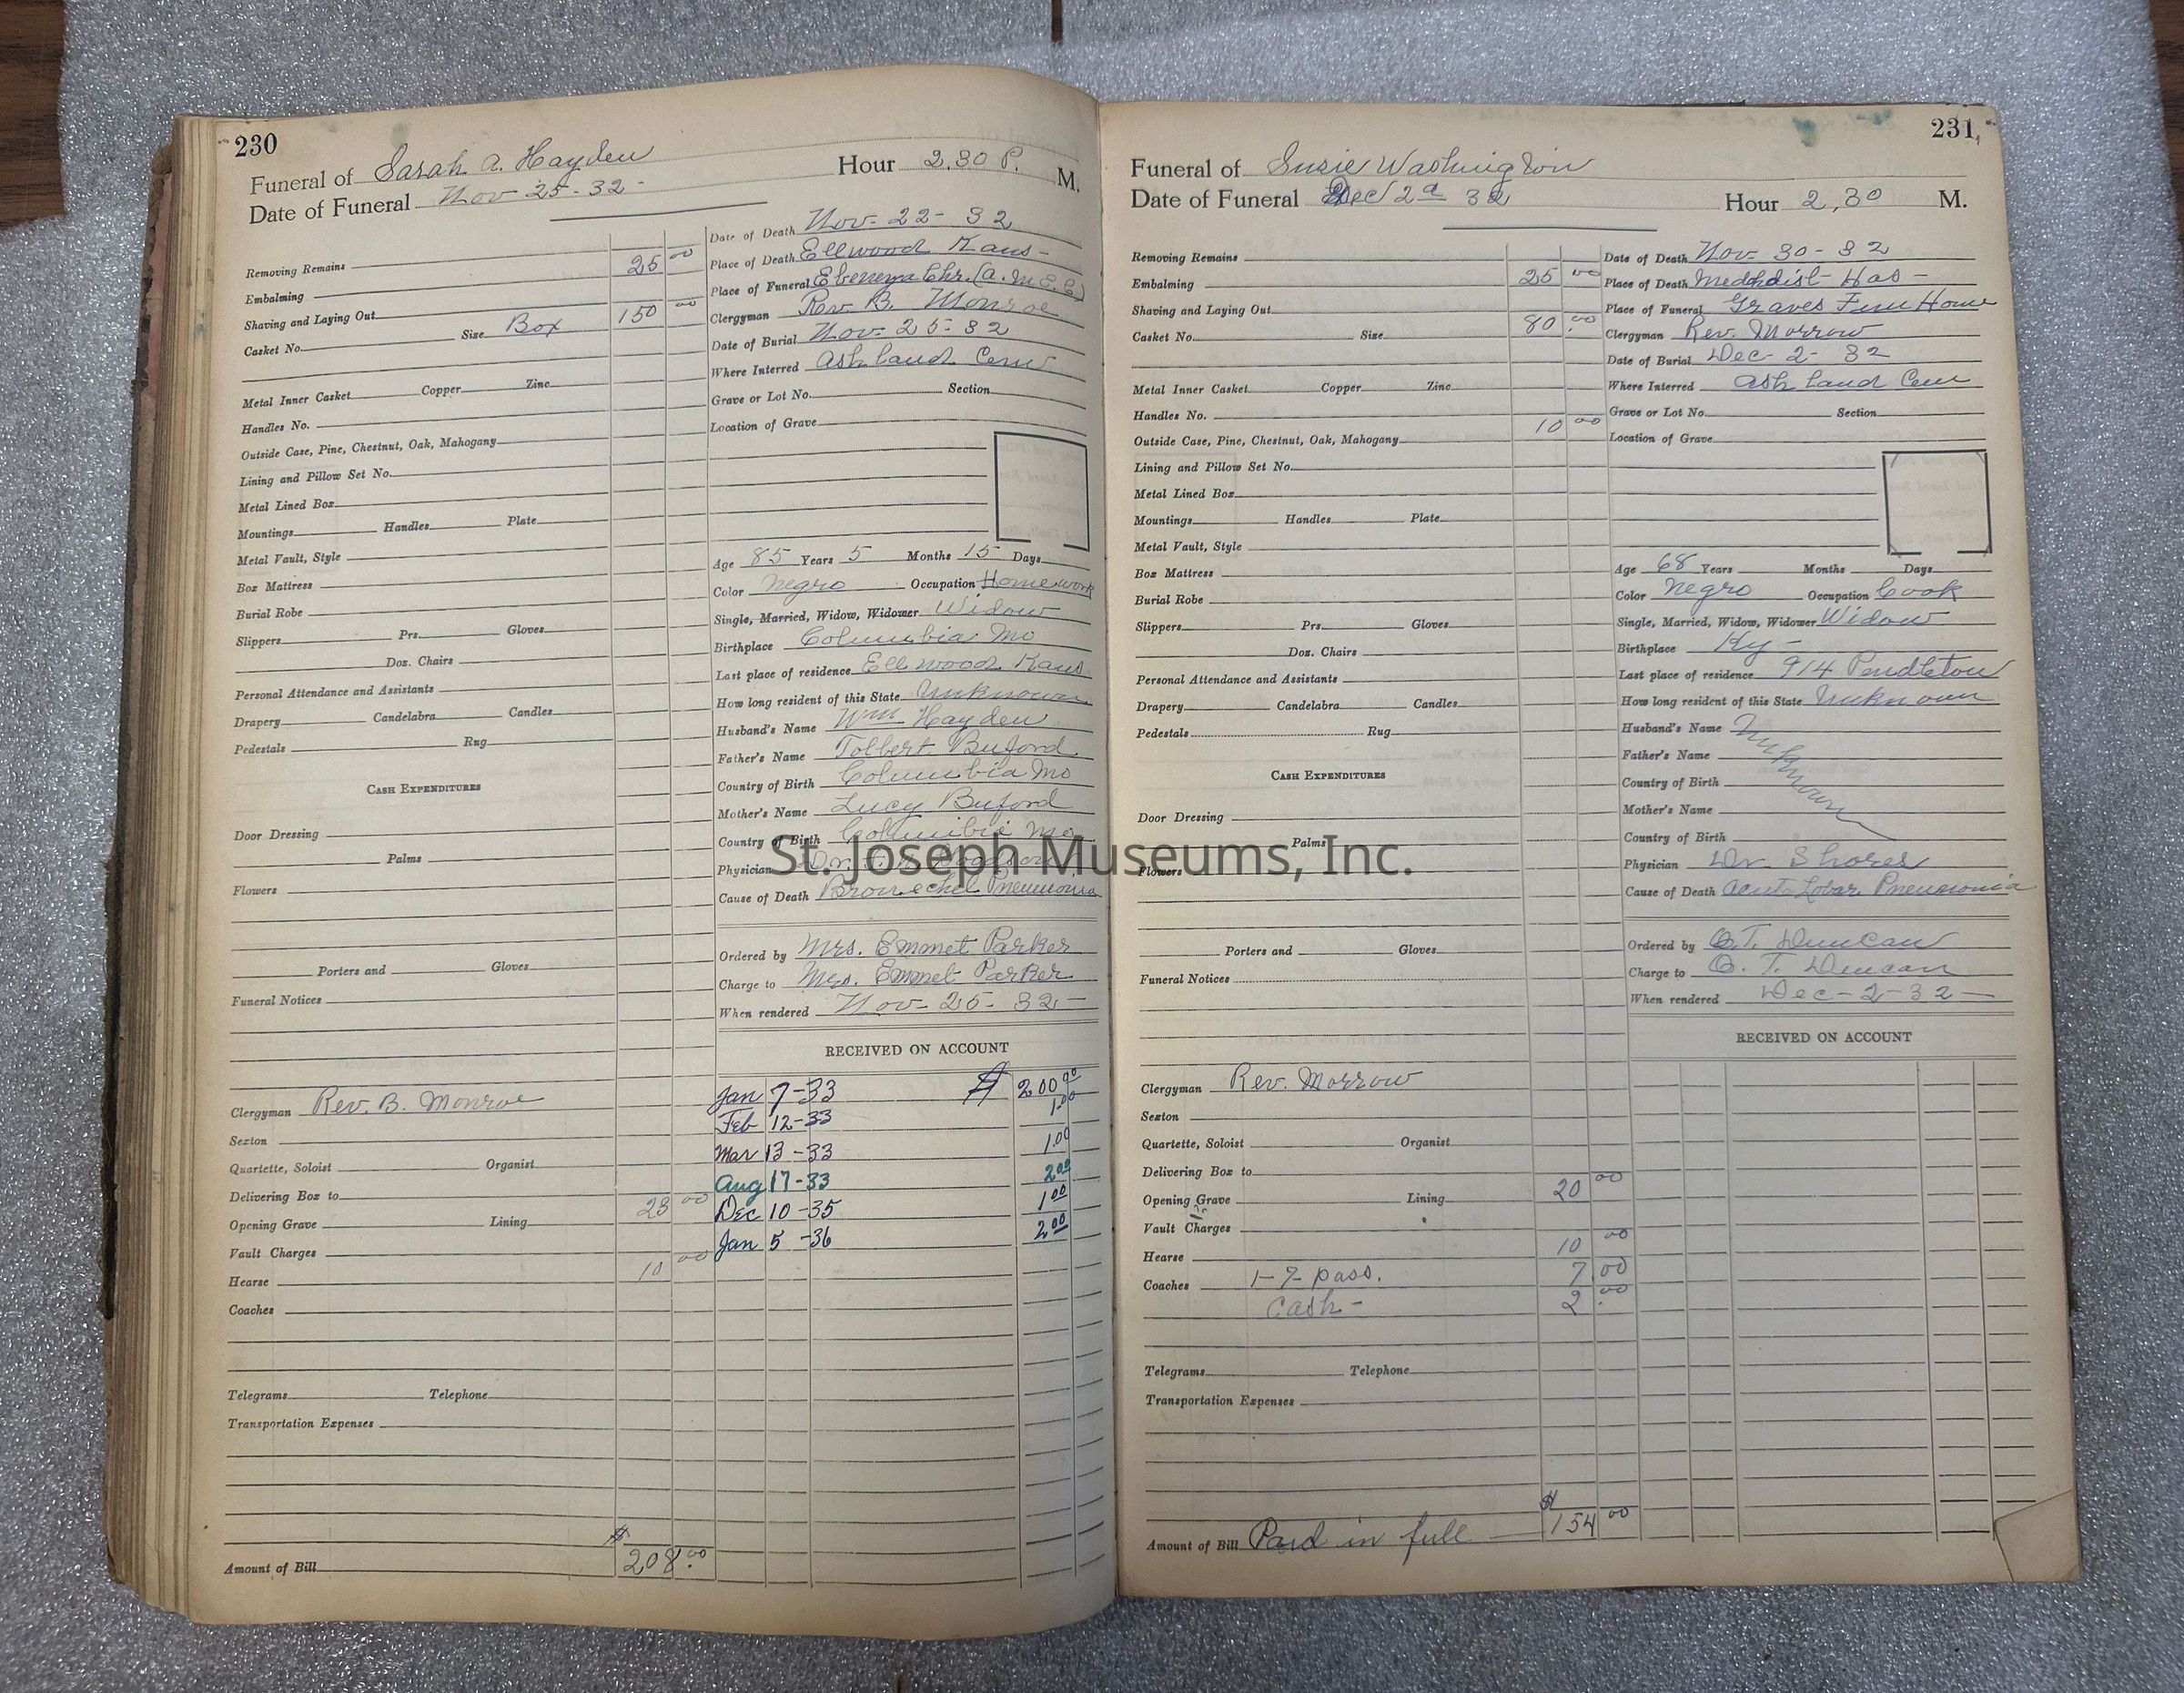 230
Funeral of Sarah A. Hayden Hour 2.30 P. M.
Date of Funeral Nov 25-32-
Removing Remains
Embalming 25 00
Shaving and Laying Out
Casket No. Size Box 150 00
Metal Inner Casket Copper Zinc
Handles No.
Outside Case, Pine, Chestnut, Oak, Mahogany
Lining and Pillow Set No.
Metal Lined Box
Mountings Handles Plate
Metal Vault, Style
Box Mattress
Burial Robe
Slippers Prs. Gloves
Doz. Chairs
Personal Attendance and Assistants
Drapery Candelabra Candles
Pedestals Rug
CASH EXPENDITURES
Door Dressing
Palms
Flowers
Porters and Gloves
Funeral Notices
Clergyman Rev. B. Monroe
Sexton
Quartette, Soloist Organist
Delivering Box to
Opening Grave Lining 23 00
Vault Charges
Hearse 10 00
Coaches
Telegrams Telephone
Transportation Expenses
Amount of Bill $ 208.00
Date of Death Nov-22-32
Place of Death Ellwood Kans-
Place of Funeral Chr. (A.M.E.C)
Clergyman Rev B. Monroe
Date of Burial Nov-25-32
Where Interred Ashland Cem
Grave or Lot No. Section
Location of Grave
Age 85 Years 5 Months 15 Days
Color Negro Occupation Homework
Single, Married, Widow, Widower Widow
Birthplace Columbia Mo
Last place of residence Ellwood Kans
How long resident of this State Unknown
Husband's Name Wm Hayden
Father's Name Tolbert Buford
Country of Birth Columbia Mo
Mother's Name Lucy Buford
Country of Birth Columbia Mo
Physician Dr.
Cause of Death Bronechel Pneumonia
Ordered by Mrs. Emmet Parker
Charge to Mrs. Emmet Parker
When rendered Nov-25-32-
RECEIVED ON ACCOUNT
Jan 7-33 $ 200 00
Feb 12-33 1.00
Mar 13-33 1.00
Aug 17-33 2 00
Dec 10-35 1 00
Jan 5-36 2 00
231
Funeral of Susie Washington
Date of Funeral Dec 2 32 Hour 2,30 M.
Removing Remains
Embalming 25 00
Shaving and Laying Out
Casket No. Size 80.00
Metal Inner Casket Copper Zinc
Handles No.
Outside Case, Pine, Chestnut, Oak, Mahogany 10 00
Lining and Pillow Set No.
Metal Lined Box
Mountings Handles Plate
Metal Vault, Style
Box Mattress
Burial Robe
Slippers Prs. Gloves
Doz. Chairs
Personal Attendance and Assistants
Drapery Candelabra Candles
Pedestals Rug
CASH EXPENDITURES
Door Dressing
Palms
Flowers
Porters and Gloves
Funeral Notices
Clergyman Rev. Morrow
Sexton
Quartette, Soloist Organist
Delivering Box to
Opening Grave Lining 20 00
Vault Charges
Hearse 10 00
Coaches 1-7-pass. 7.00
Cash- 2.00
Telegrams Telephone
Transportation Expenses
Amount of Bill Paid in full $ 154 00
Date of Death Nov-30-32
Place of Death Methdist-Hos-
Place of Funeral Graves Fun Home
Clergyman Rev. Morrow
Date of Burial Dec-2-32
Where Interred Ashland Cem
Grave or Lot No. Section
Location of Grave
Age 68 Years Months Days
Color Negro Occupation Cook
Single, Married, Widow, Widower Widow
Birthplace Ky-
Last place of residence 914 Pendleton
How long resident of this State Unknown
Husband's Name Unknown
Father's Name
Country of Birth
Mother's Name
Country of Birth
Physician Dr. Shores
Cause of Death Acute Lobar Pneumonia
Ordered by O.T. Duncan
Charge to O. T. Duncan
When rendered Dec-2-32-
RECEIVED ON ACCOUNT
St. Joseph Museums, Inc.